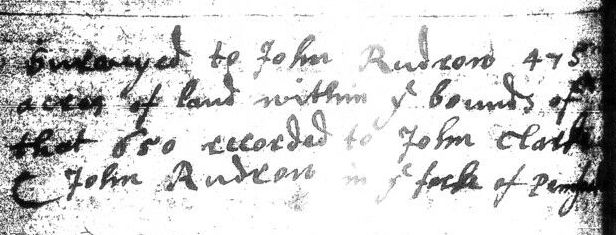 Surveyed to John Rudrow 475
acres of land within ye bounds of
that 650 recorded to John Clark
John Rudrow in ye fork of